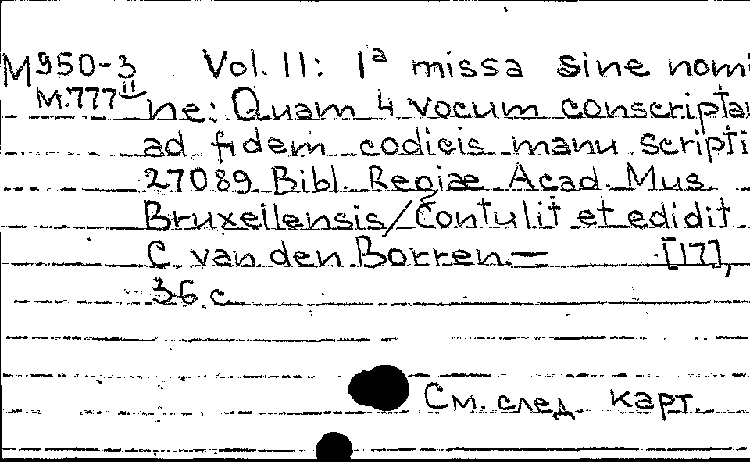 M950-3 Vol. II: Iª missa sine nomi
M.777 II ne: Quam 4 vocum conscriptam
ad fidem codicis manu scripti
27089 Bibl. Regiae Acad. Mus.
Bruxellensis/Contulit et edidit
C. van den Borren.— [17],
36 c.
См. след. карт.